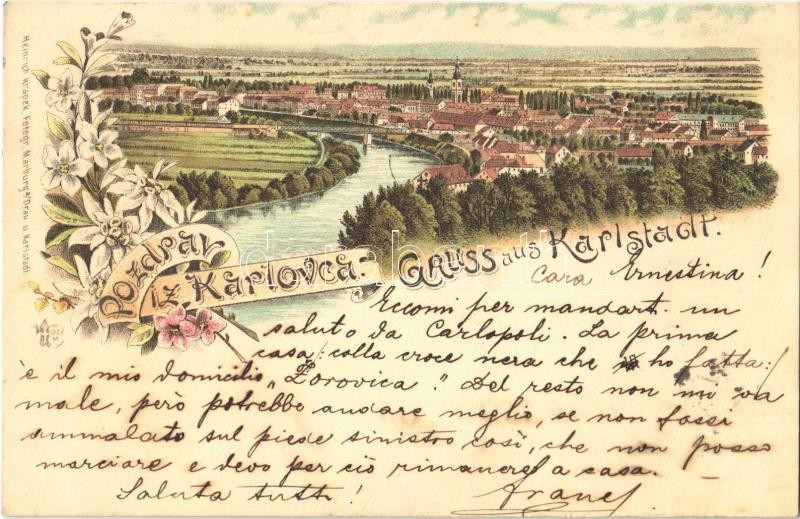 Heinrich Krapek, Fotogr., Marburg a/Drau u. Karlstadt.
Pozdrav
iz Karlovca:
Gruss aus Karlstadt.
Cara Ernestina!
Eccomi per mandarti un
saluto da Carlopoli. La prima
casa (colla croce nera che ho fatta:)
è il mio domicilio "Borovica." Del resto non mi va
male, però potrebbe andare meglio, se non fossi
ammalato sul piede sinistro così, che non posso
marciare e devo per ciò rimanere a casa.
Saluta tutti!